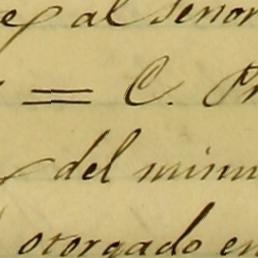 al Señor
= C. P
del mism
otorgado en